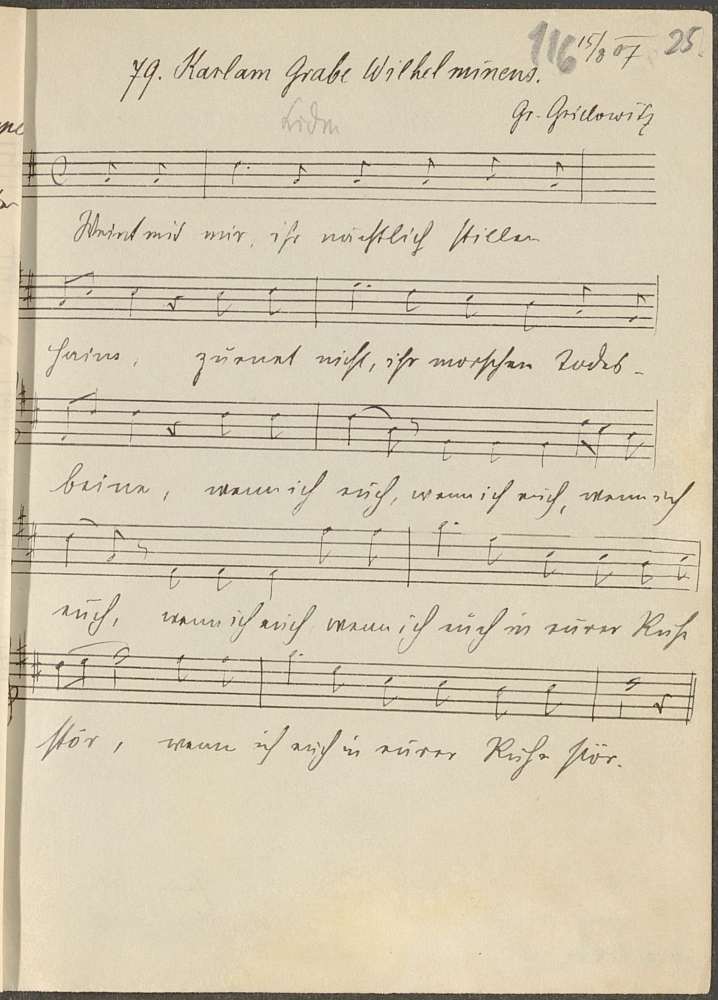 116 15/8 07 25.
79. Karl am Grabe Wilhelminens.
Gr. Grislowitz
Weint mit mir, ihr nächtlich stillen
Haine, zürnet nicht, ihr morschen Todes-
beine, wenn ich euch, wenn ich euch, wenn ich
euch, wenn ich euch wenn ich euch in eurer Ruhe
stör, wenn ich euch in eurer Ruhe stör.